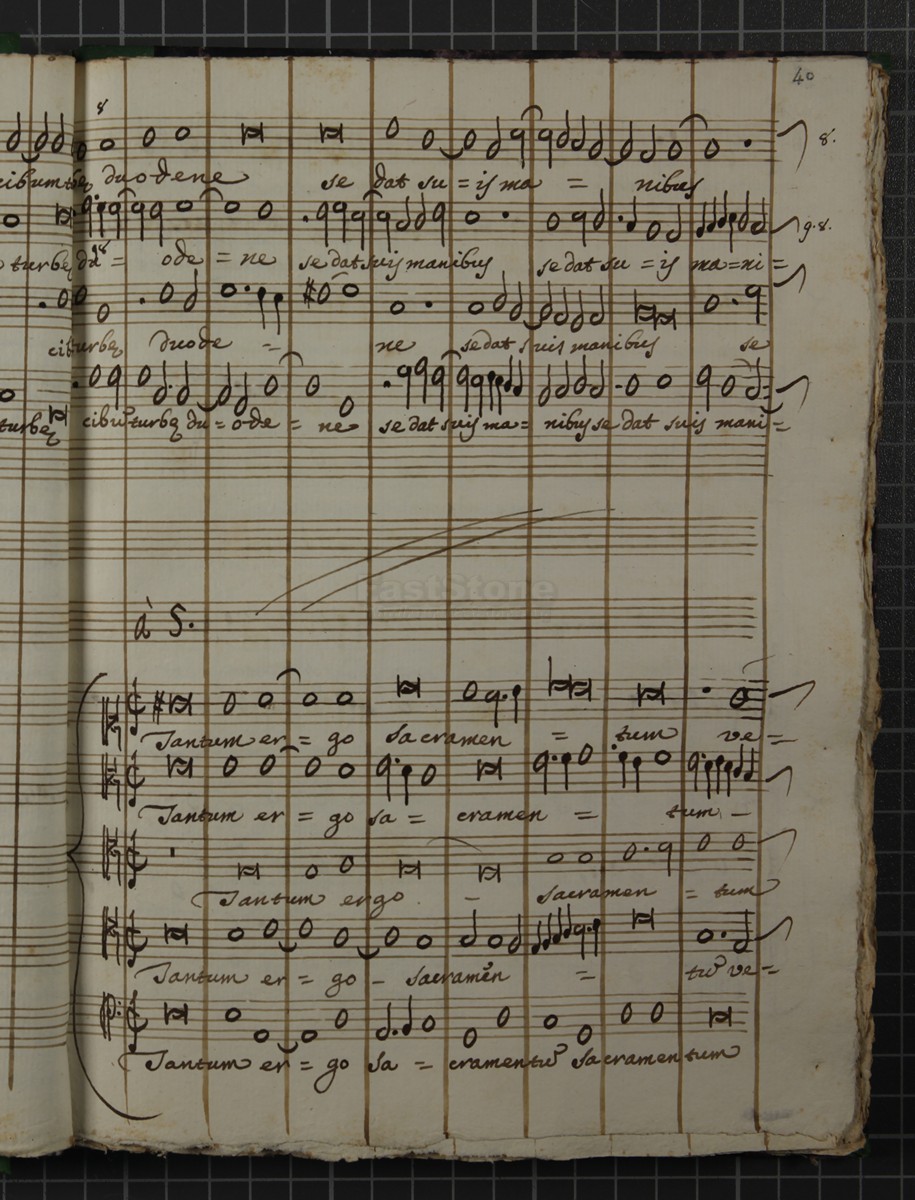 40
8
cibum tbę duodene se dat su = is ma = nibus
8.
turbę du = ode = ne se dat suis manibus se dat su = is ma = ni =
9.8.
cib turbę duode = ne se dat suis manibus se
turbę cibũ turbę du = o de = ne se dat suis ma = nibus se dat suis mani =
à 5.
Tantum er = go sacramen = tum ve =
Tantum er = go sa = cramen = tum -
Tantum ergo - sacramen = tum
Tantum er = go - sacramẽn = tũ ve =
Tantum er = go sa = cramentũ sacramentum